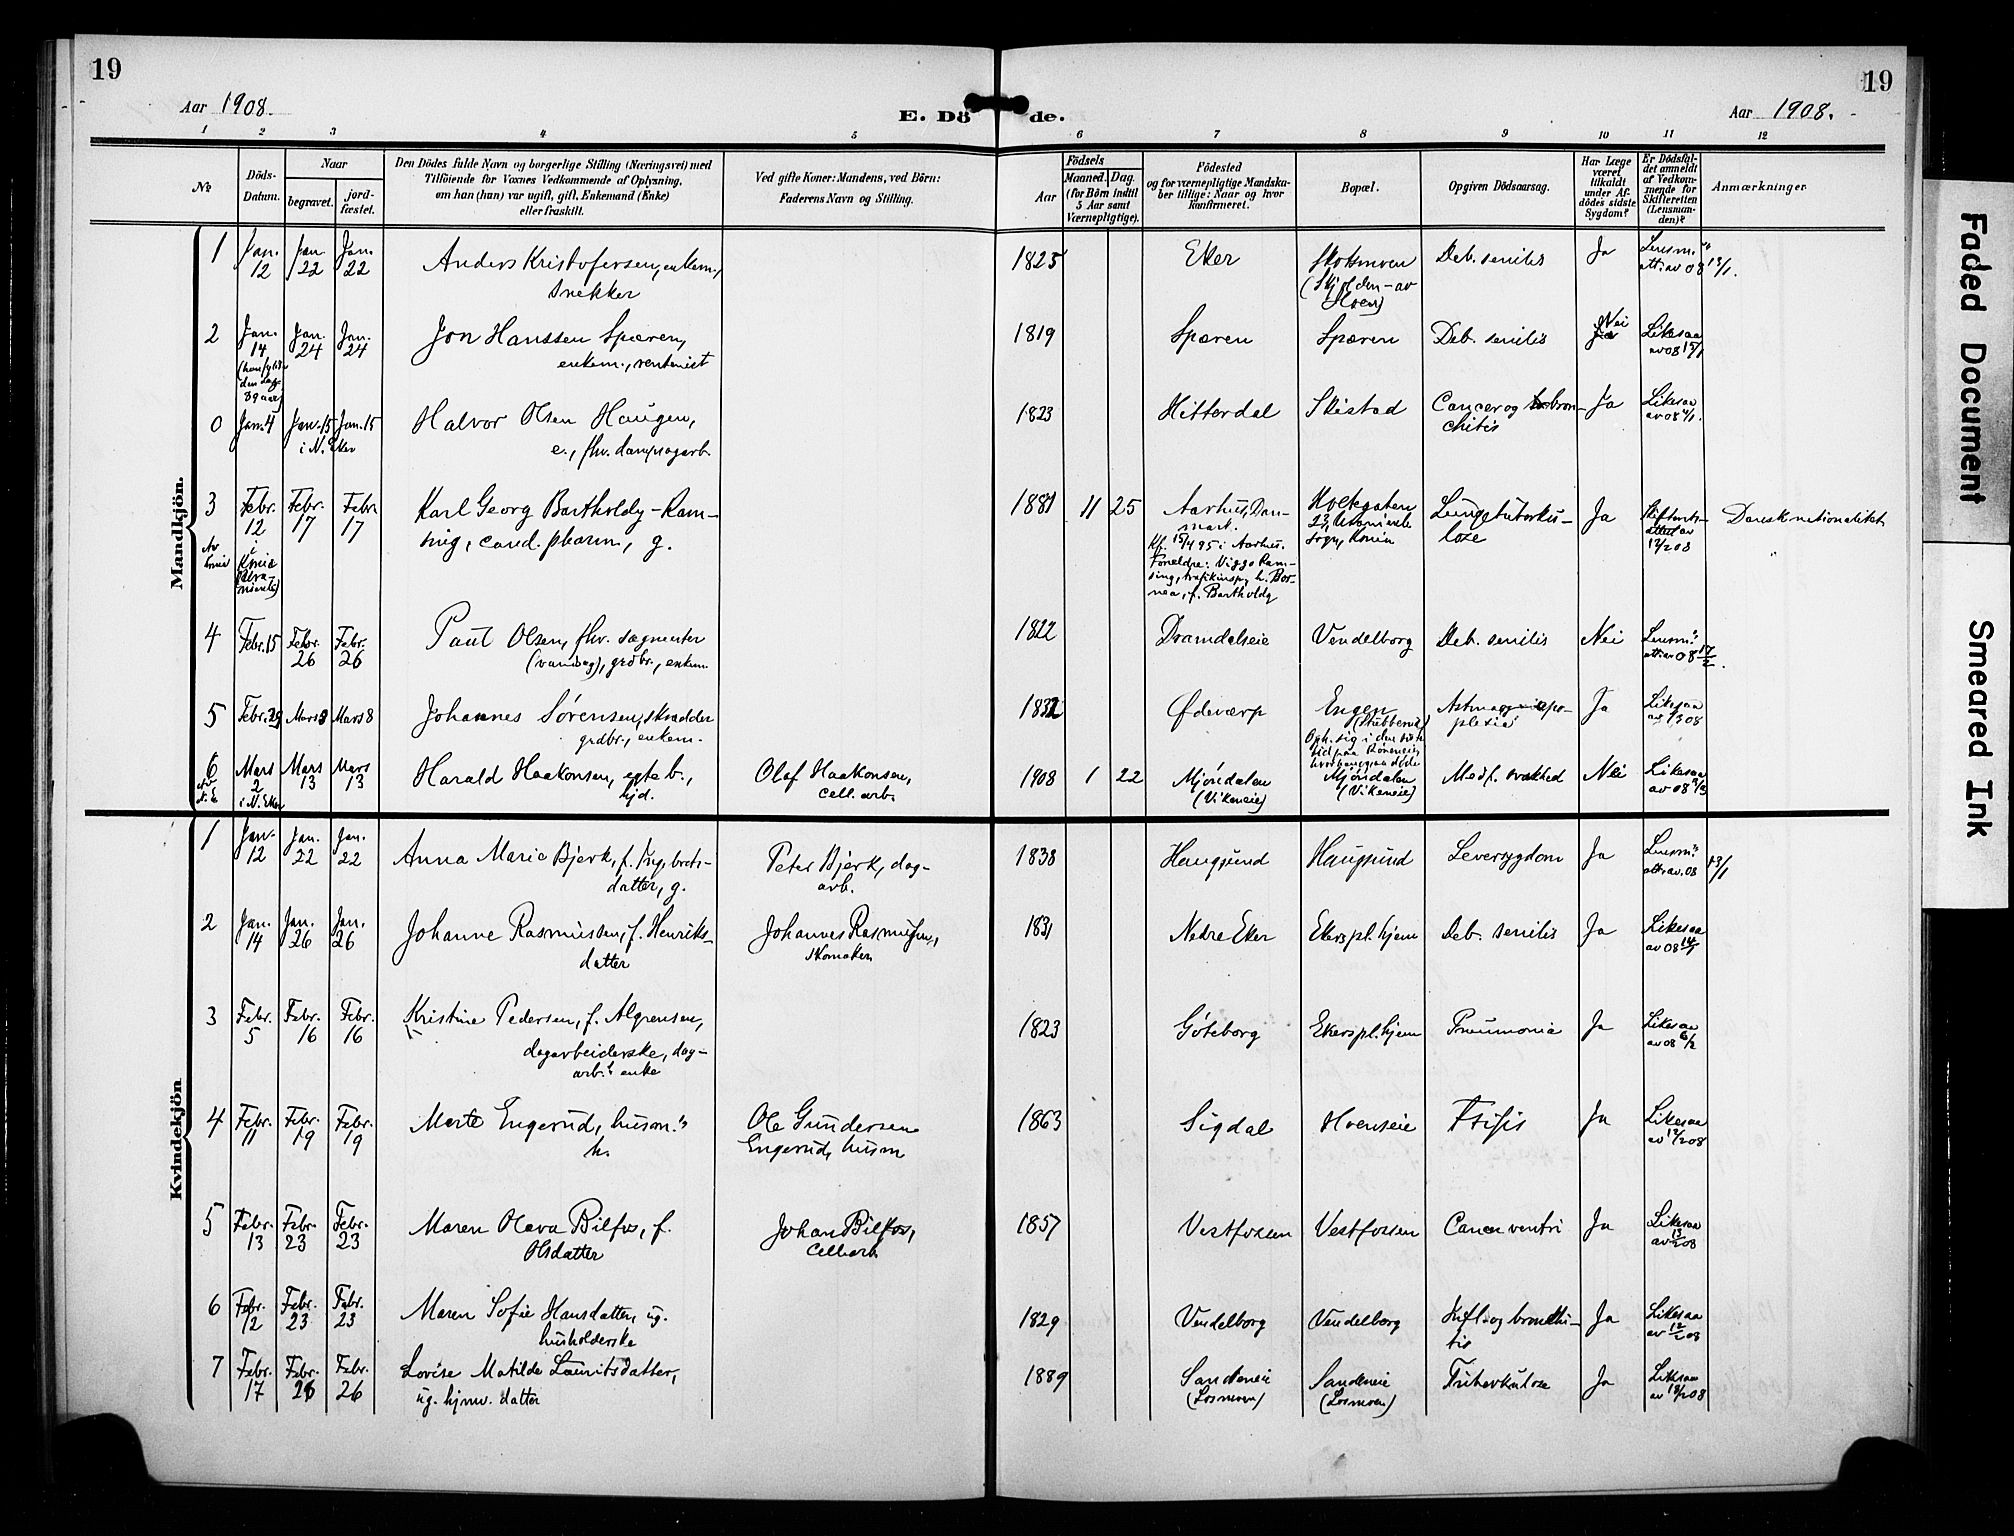 19
19
Aar 1908.
E. Dö de.
Aar 1908.
1 2 3 4 5 6 7 8 9 10 11 12
No
Döds-
Datum.
Naar
begravet.
jord-
fæstet.
Den Dödes fulde Navn og borgerlige Stilling (Næringsvei) med
Tilföiende for Voxnes Vedkommende af Oplysning,
om han (hun) var ugift, gift, Enkemand (Enke)
eller fraskilt.
Ved gifte Koner: Mandens, ved Börn:
Faderens Navn og Stilling.
Födsels
Aar
Maaned. Dag.
(for Börn indtil
5 Aar samt
Værnepligtige).
Födested
og for værnepligtige Mandska-
ber tillige: Naar og hvor
konfirmeret.
Bopæl.
Opgiven Dödsaarsag.
Har Læge
været
tilkaldt
under Af-
dödes sidste
Sygdom?
Er Dödsfal-
det anmeldt
af Vedkom-
mende for
Skifteretten
(Lensman-
den)?
Anmærkninger
Mandkjön.
1 Jan. 12 Jan. 22 Jan. 22 Anders Kristofersen, enkem.,
snekker
1825 Eker Skotsmoen
(Skjolden - av
Hoen)
Deb. senilis Ja Lensm.s
att. av 08 13/1.
2 Jan. 14 Jan. 24 Jan. 24 Jon Hanssen Spæren,
enkem., rentenist
1819 Spæren Spæren Deb. senilis Nei Likesaa
av 08 15/1
0 Jan. 4 Jan. 15 Jan. 15
i N. Eker
Halvor Olsen Haugen,
e., fhv. dampsagarb.
1823 Hitterdal Skistad Cancer og bron-
chitis
Ja Likesaa
av 08 4/1.
3 Febr. 12 Febr. 17 Febr. 17 Karl Georg Bartholdy-Ram-
sing, cand. pharm., g.
1881 11 25 Aarhus, Dan-
mark.
Kf. 15/4 95 i Aarhus.
Forældre: Viggo Ram-
sing, trafikinsp., h. Bor-
nea, f. Bartholdy
Ja
12/2 08
Dansk nationalitet
4 Febr. 15 Febr. 26 Febr. 26 Paul Olsen, fhv. sagmester
(vandsag), grdbr., enkem.
1822 Dramdalseie Vendelborg Deb. senilis Nei Lensm.s
att. av 08 17/2.
5 Febr. 29 Mars 8 Mars 8 Johannes Sørensen, skrædder
grdbr., enkem.
1832 Ødeværp Engen
Opk. sig i den siste
tid paa
Astma apo-
plexia
Ja Likesaa
6 Mars 2 Mars 13 Mars 13
i N. Eker
Harald Haakonsen, egteb.,
hjd.
Olaf Haakonsen,
cell. arb.
1908 1 22 Mjøndalen
(Vikeneie)
Mjøndalen
(Vikeneie)
Medf. svakhed Nei Likesaa
av 08 3/3
Kvindekjön
1 Jan. 12 Jan. 22 Jan. 22 Anna Marie Bjerk, f. Ingebrets-
datter, g.
Peter Bjerk, dag-
arb.
1838 Haugsund Haugsund Leversygdom Ja Lensm.s
att. av. 08 13/1
2 Jan. 14 Jan. 26 Jan. 26 Johanne Rasmussen, f. Henriks-
datter
Johannes Rasmussen,
skomaker
1831 Nedre Eker Ekers pl.hjem Deb. senilis Ja Likesaa
av 08 14/1
3 Febr. 5 Febr. 16 Febr. 16 Kristine Pedersen, f. Algrensen,
dagarbeiderske, dag-
arb.s enke
1823 Göteborg Ekers pl.hjem Pneumonia Ja Likesaa
av 08 6/2
4 Febr. 11 Febr. 19 Febr. 19 Marte Engerud, husm.s
h.
Ole Gundersen
Engerud, husm
1863 Sigdal Hoenseie Ftisis Ja Likesaa
av 12/2 08
5 Febr. 13 Febr. 23 Febr. 23 Maren Olava Bilfos, f.
Olsdatter
Johan Bilfos,
Cell.arb.
1857 Vestfossen Vestfossen Cancer ventri Ja Likesaa
av 13/2 08
6 Febr. 12 Febr. 23 Febr. 23 Maren Sofie Hansdatter, ug.
husholderske
1829 Vendelborg Vendelborg Infl. og bronchi-
tis
Ja Likesaa
av 12/2 08
7 Febr. 17 Febr. 26 Febr. 26 Lovise Matilde Lauritsdatter,
ug. hjmv. datter
1889 Sandeneie
(Losmoen)
Sandeneie
(Losmoen)
Tuberkulose Ja Likesaa
av 18/2 08
Faded Document
Smeared Ink